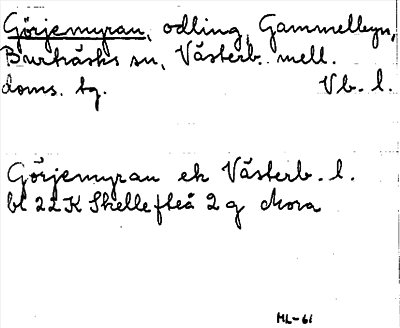 Görjemyran, odling, Gammelbyn,
Burträsks sn, Västerb. mell.
doms. tg. Vb. l.
Görjemyran ek Västerb. l.
bl 22K Skellefteå 2 g Mora
ML-61